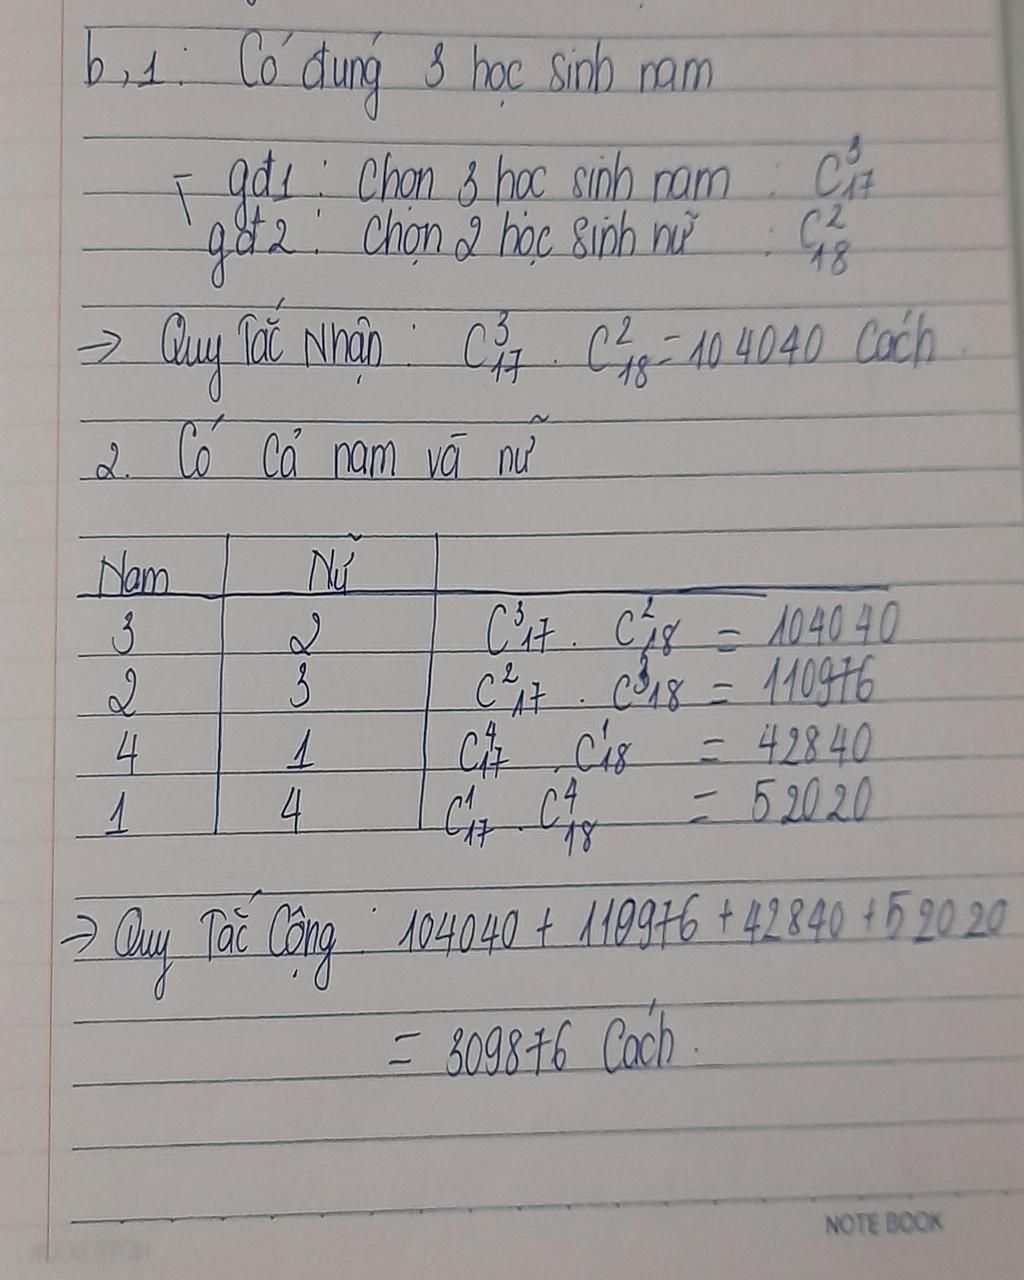 b,1: Có đúng 3 học sinh nam
- gđ1: Chọn 3 học sinh nam : C³₁₇
gđ2: Chọn 2 học sinh nữ : C²₁₈
=> Quy Tắc Nhân: C³₁₇ . C²₁₈ = 104040 Cách.
2. Có cả nam và nữ
Nam Nữ
3 2 C³₁₇ . C²₁₈ = 104040
2 3 C²₁₇ . C³₁₈ = 110976
4 1 C⁴₁₇ . C¹₁₈ = 42840
1 4 C¹₁₇ . C⁴₁₈ = 52020
=> Quy Tắc Cộng: 104040 + 110976 + 42840 + 52020
= 309876 Cách.
NOTE BOOK